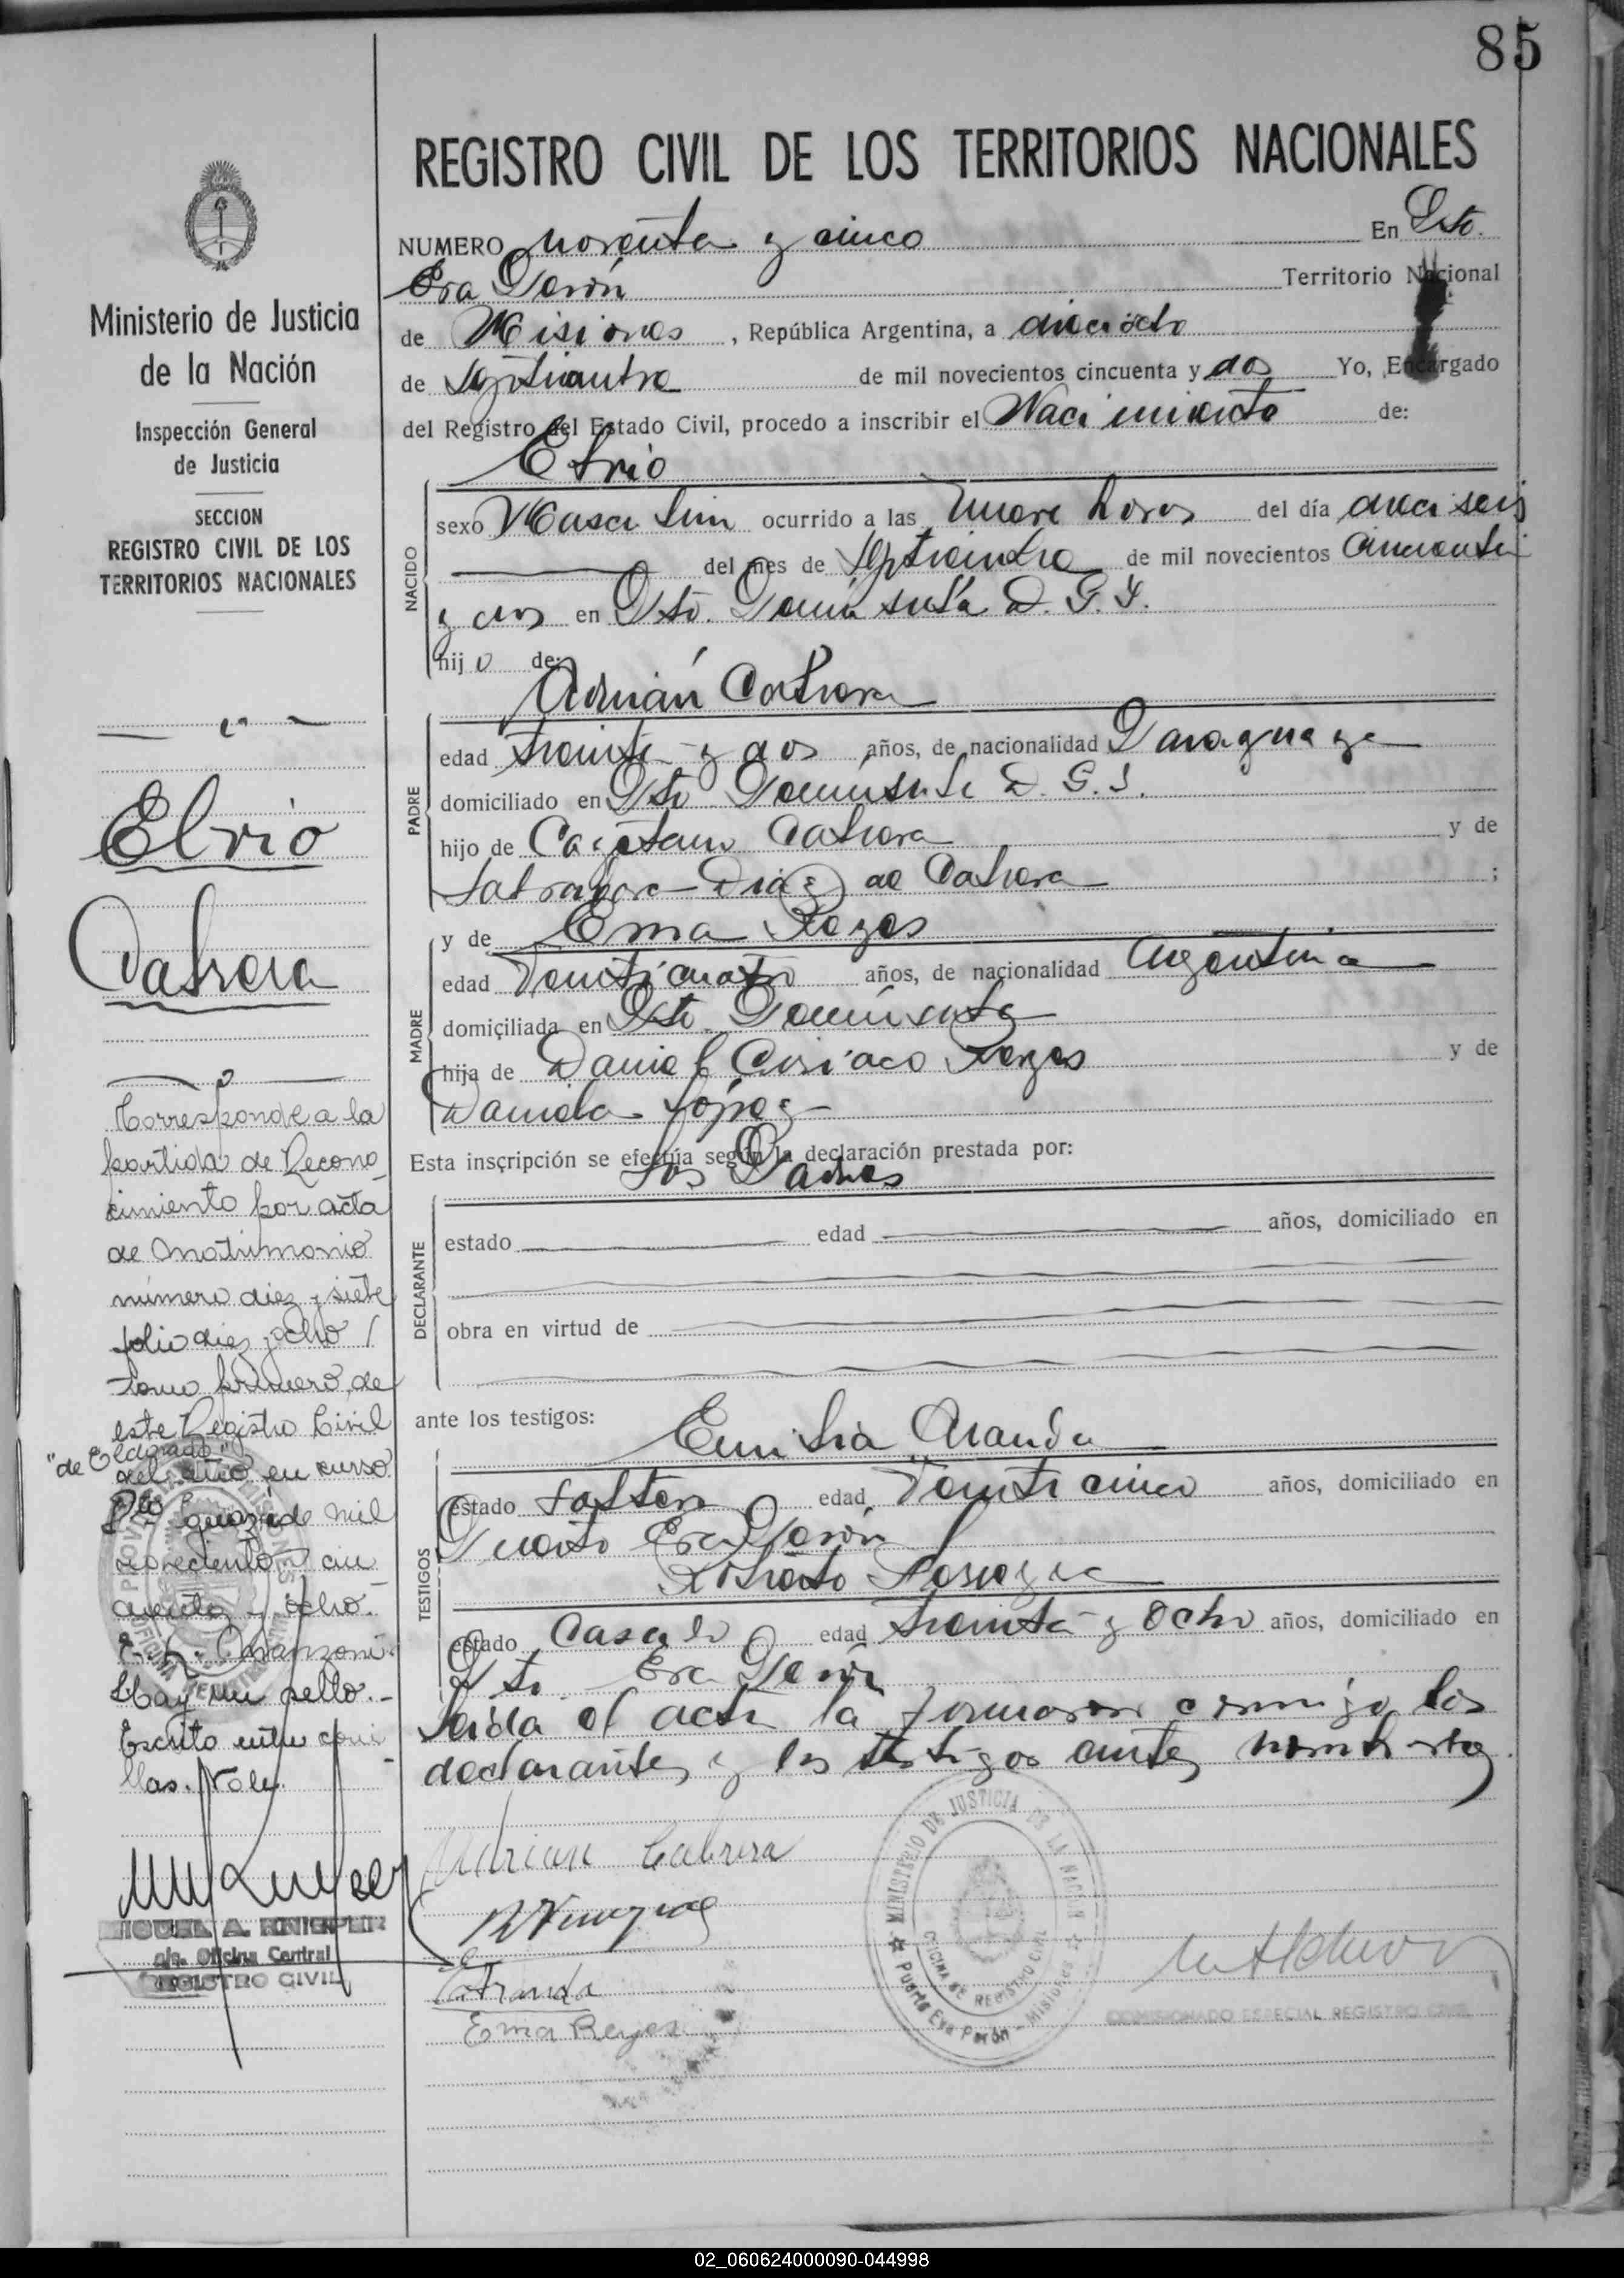 85
REGISTRO CIVIL DE LOS TERRITORIOS NACIONALES
NUMERO noventa y cinco En Pto.
Eva Perón Territorio Nacional
de Misiones, República Argentina, a dieciocho
de Septiembre de mil novecientos cincuenta y dos Yo, Encargado
del Registro del Estado Civil, procedo a inscribir el Nacimiento de:
Elvio
NACIDO
sexo Masculino ocurrido a las nueve horas del día dieciseis
del mes de Septiembre de mil novecientos cincuenta
y dos en Pto. Península D. G. Y.
hijo de:
Adrián Cabrera
PADRE
edad treinta y dos años, de nacionalidad Paraguaya
domiciliado en Pto Península D. G. Y.
hijo de Cayetano Cabrera y de
Salvadora Diaz de Cabrera ;
y de Ema Reyes
MADRE
edad Veinticuatro años, de nacionalidad Argentina
domiciliada en Pto. Península
hija de Daniel Ciriaco Reyes y de
Daniela López
Esta inscripción se efectúa según la declaración prestada por:
Los Padres
DECLARANTE
estado edad años, domiciliado en
obra en virtud de
ante los testigos:
Emilia Aranda
TESTIGOS
estado Soltera edad Veinticinco años, domiciliado en
Puerto Eva Perón
Roberto
estado Casado edad treinta y ocho años, domiciliado en
Pto. Eva Perón
Leida el acta la firmaron conmigo los
declarantes y los testigos antes nombrados
Adrian Cabrera
Aranda
Ema Reyes
MINISTERIO DE JUSTICIA DE LA NACION
OFICINA DE REGISTRO CIVIL
Puerto Eva Perón - Misiones
COMISIONADO ESPECIAL REGISTRO CIVIL
Ministerio de Justicia
de la Nación
Inspección General
de Justicia
SECCION
REGISTRO CIVIL DE LOS
TERRITORIOS NACIONALES
Elvio
Cabrera
Corresponde a la
partida de Recono-
cimiento por acta
de matrimonio
número diez y siete
folio diez y ocho
tomo primero, de
este Registro Civil
"de Eldorado"
del año en curso
Pto Iguazú de mil
novecientos cin-
cuenta y ocho.
Manzoni
Hay un sello.-
Escrito entre comi-
llas. Vale.
MIGUEL A.
a/c. Oficina Central
REGISTRO CIVIL
02_060624000090-044998